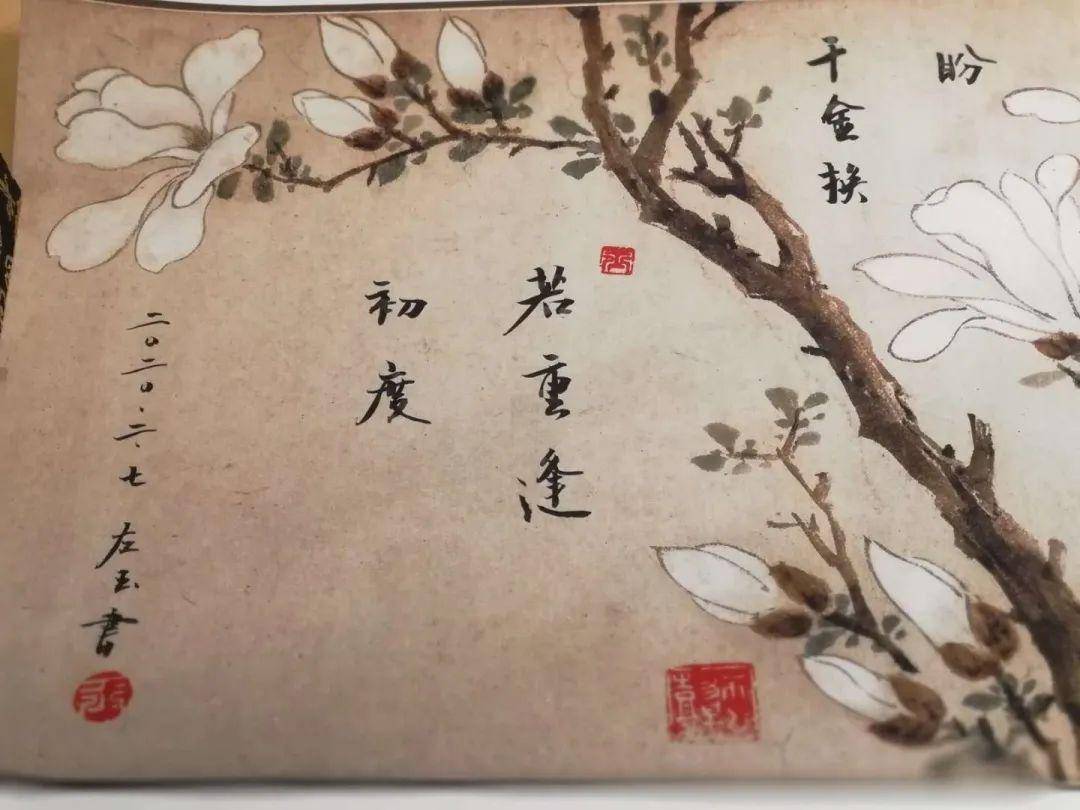 盼
千金换
若重逢
初度
二〇二〇.二.七 左玉书